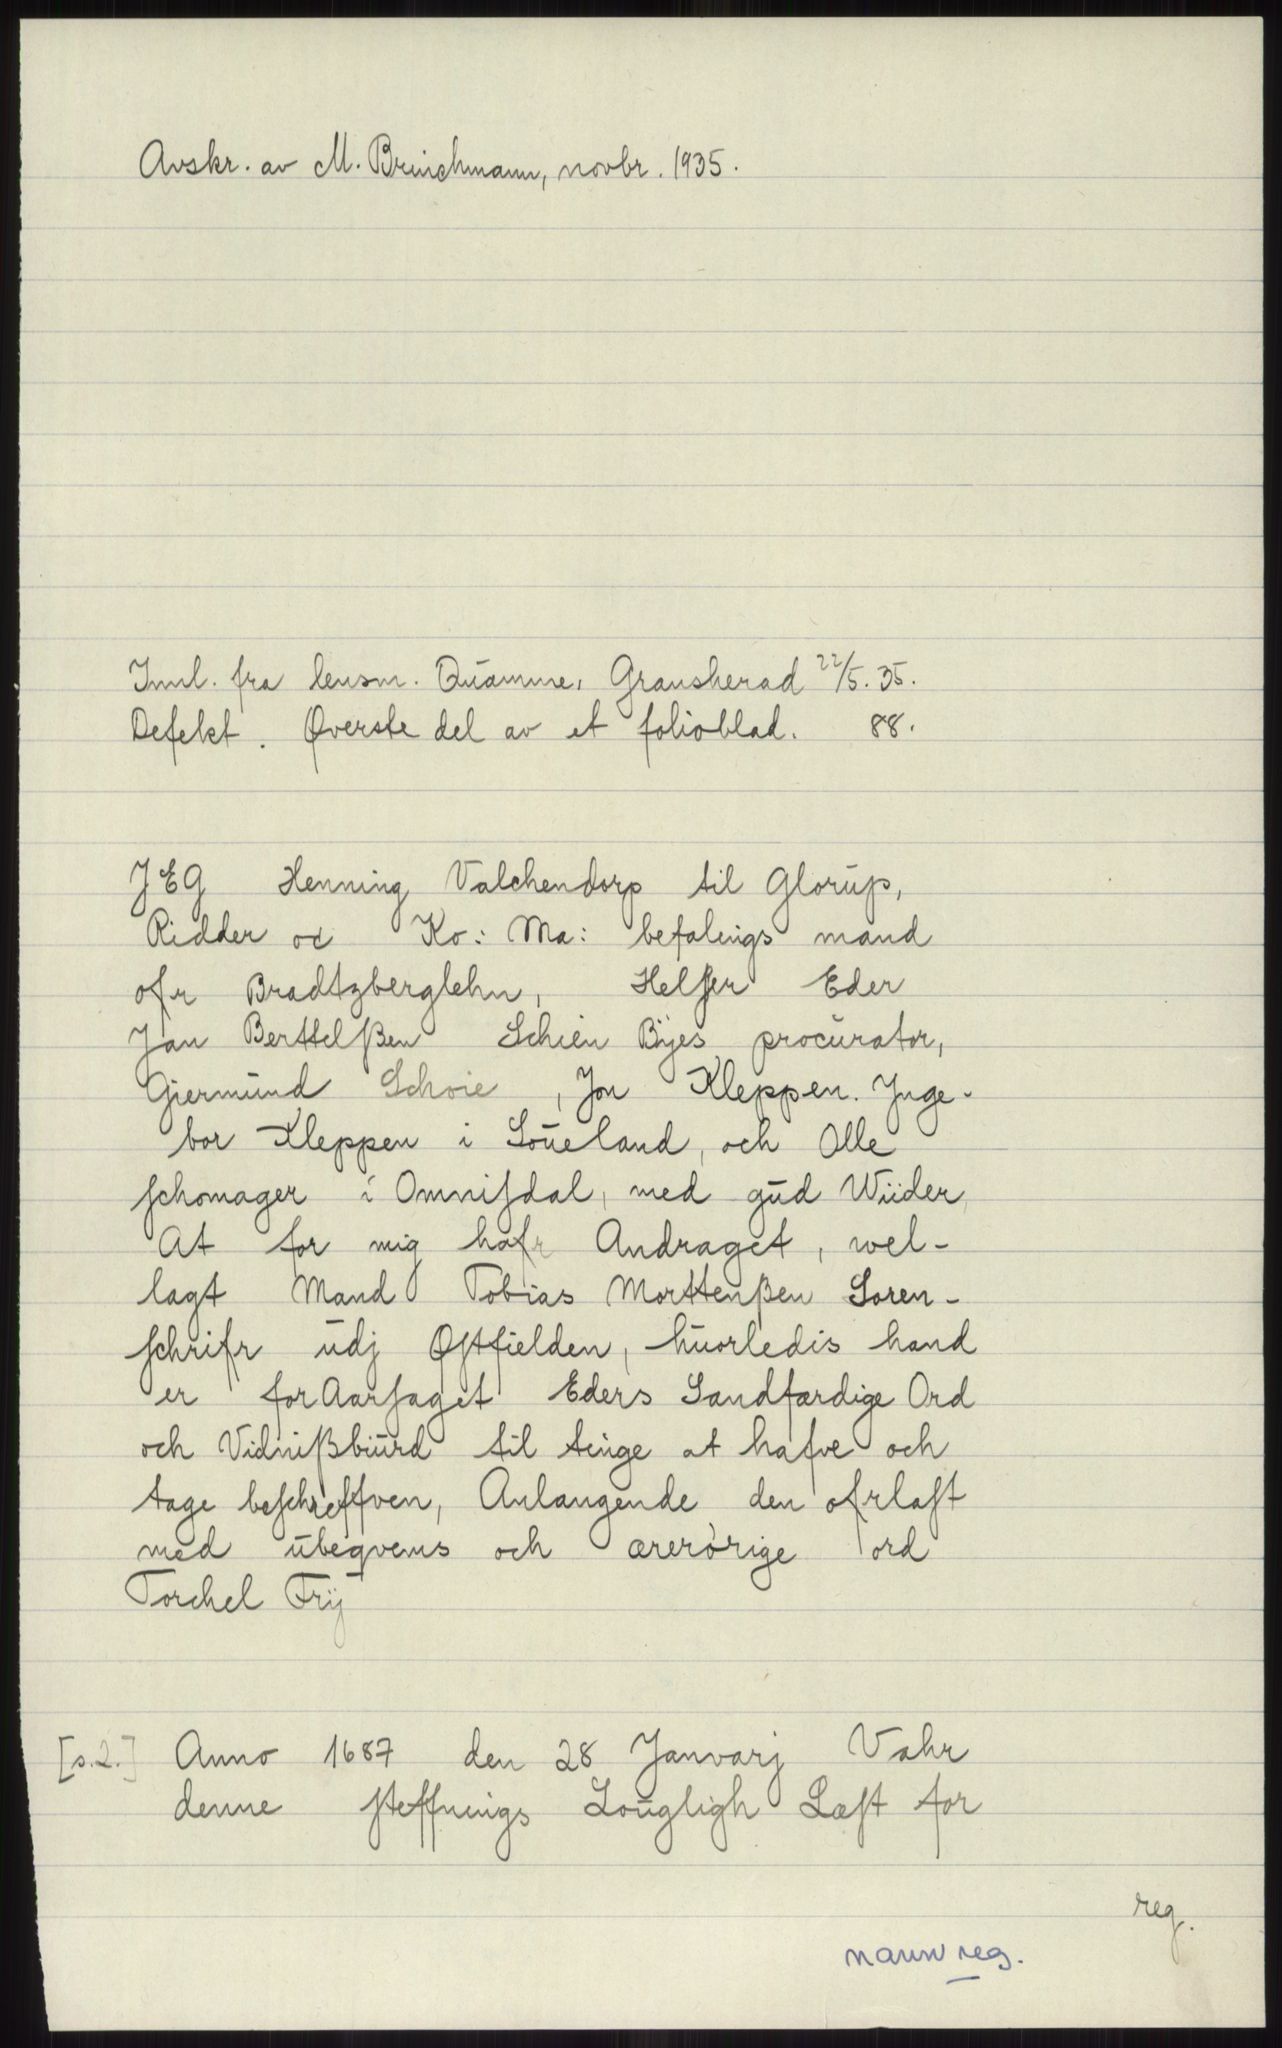 Avskr. av M. Brinchmann, novbr. 1935.
Innl. fra lensm. Quamme, Gransherad 22/5. 35.
Defekt. Øverste del av et folioblad. 88.
JEG Henning Valchendorp til Glorup,
Ridder oc Ko: Ma: befalings mand
ofr Bradtzberglehn, Helſer Eder
Jan Berttelßen Schien Byes procurator,
Giermund Schoie, Jon Kleppen. Jnge-
bor Kleppen i Soueland, och Olle
ſchomager i Omniſdal, med gud Wiider,
At for mig hafr Andraget, wel-
lagt Mand Tobias Morttenßen Soren-
ſchrifr udj Øſtfielden, huorledis hand
er forAarſaget Eders Sandfærdige Ord
och Vidnißbiurd til tinge at hafve och
tage beſchreffven, Anlangende den ofrlaſt
med ubeqvems och ærerørige ord
Torchel Frÿ
[s.2.] Anno 1687 den 28 Janvarj Vahr
denne ſteffnings Louglígh Læſt for
reg.
navnreg.